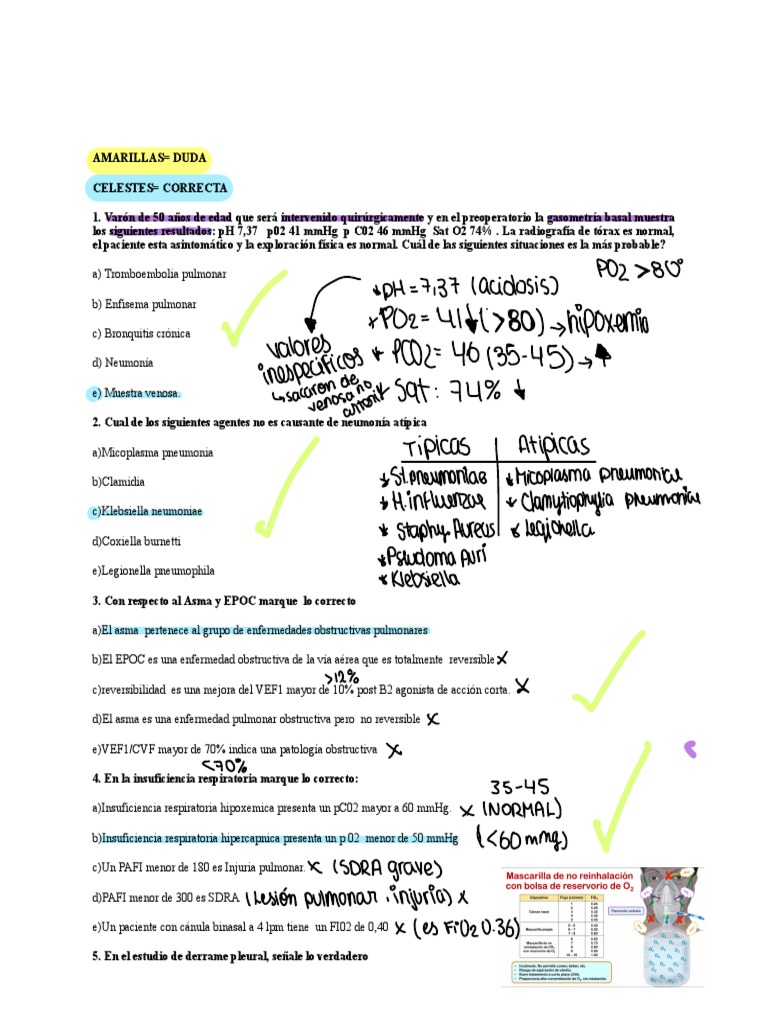 AMARILLAS= DUDA
CELESTES= CORRECTA
1. Varón de 50 años de edad que será intervenido quirúrgicamente y en el preoperatorio la gasometría basal muestra
los siguientes resultados: pH 7,37 p02 41 mmHg p C02 46 mmHg Sat O2 74% . La radiografía de tórax es normal,
el paciente esta asintomático y la exploración física es normal. Cuál de las siguientes situaciones es la más probable?
a) Tromboembolia pulmonar
b) Enfisema pulmonar
c) Bronquitis crónica
d) Neumonía
e) Muestra venosa.
PO2 >80°
pH = 7,37 (acidosis)
PO2 = 41 ↓ (>80) → hipoxemia
PCO2 = 46 (35-45) → ↑
Sat: 74% ↓
valores
inespecificos
↳ sacaron de
venosa no
2. Cual de los siguientes agentes no es causante de neumonía atípica
a)Micoplasma pneumonia
b)Clamidia
c)Klebsiella neumoniae
d)Coxiella burnetti
e)Legionella pneumophila
Tipicas Atipicas
St. pneumoniae Micoplasma pneumoniae
H. influenzae pneumoniae
Staphy. Aureus Legionella
Pseudoma Auri
Klebsiella
3. Con respecto al Asma y EPOC marque lo correcto
a)El asma pertenece al grupo de enfermedades obstructivas pulmonares
b)El EPOC es una enfermedad obstructiva de la vía aérea que es totalmente reversible x
>12%
c)reversibilidad es una mejora del VEF1 mayor de 10% post B2 agonista de acción corta. x
d)El asma es una enfermedad pulmonar obstructiva pero no reversible x
e)VEF1/CVF mayor de 70% indica una patología obstructiva x
<70%
4. En la insuficiencia respiratoria marque lo correcto:
35-45
a)Insuficiencia respiratoria hipoxemica presenta un pC02 mayor a 60 mmHg. x (NORMAL)
b)Insuficiencia respiratoria hipercapnica presenta un p 02 menor de 50 mmHg (<60 mmg)
c)Un PAFI menor de 180 es Injuria pulmonar. x (SDRA grave)
d)PAFI menor de 300 es SDRA (Lesión pulmonar, injuria) x
e)Un paciente con cánula binasal a 4 lpm tiene un FI02 de 0,40 x (es FiO2 0.36)
Mascarilla de no reinhalación
con bolsa de reservorio de O2
5. En el estudio de derrame pleural, señale lo verdadero